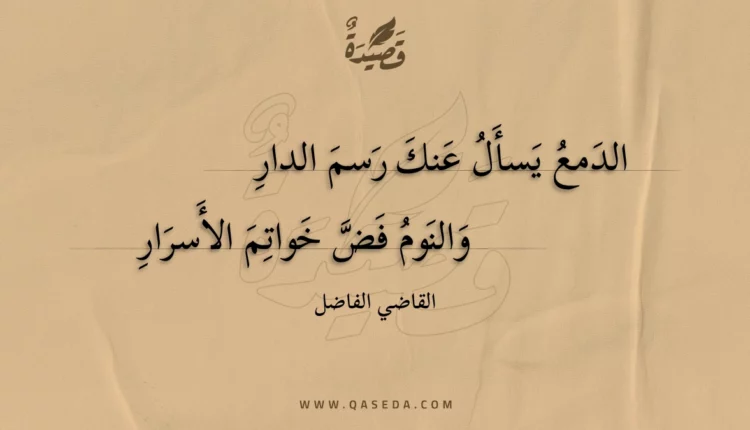 قَصِيدَةٌ
الدَمعُ يَسأَلُ عَنكَ رَسمَ الدارِ
وَالنَومُ فَضَّ خَواتِمَ الأَسرَارِ
القاضي الفاضل
WWW.QASEDA.COM